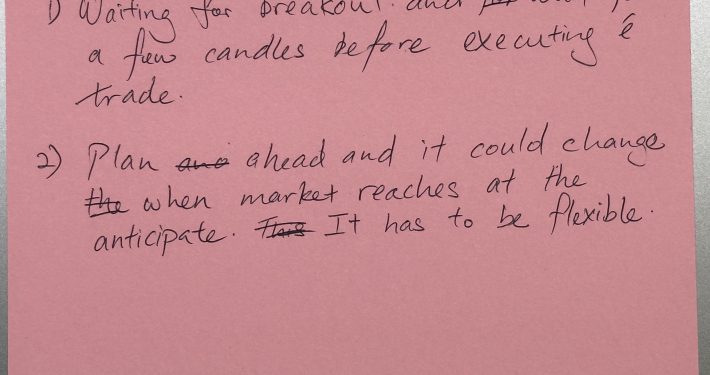 1) Waiting for breakout. and
a few candles before executing é
trade.
2) Plan ahead and it could change
when market reaches at the
anticipate. It has to be flexible.